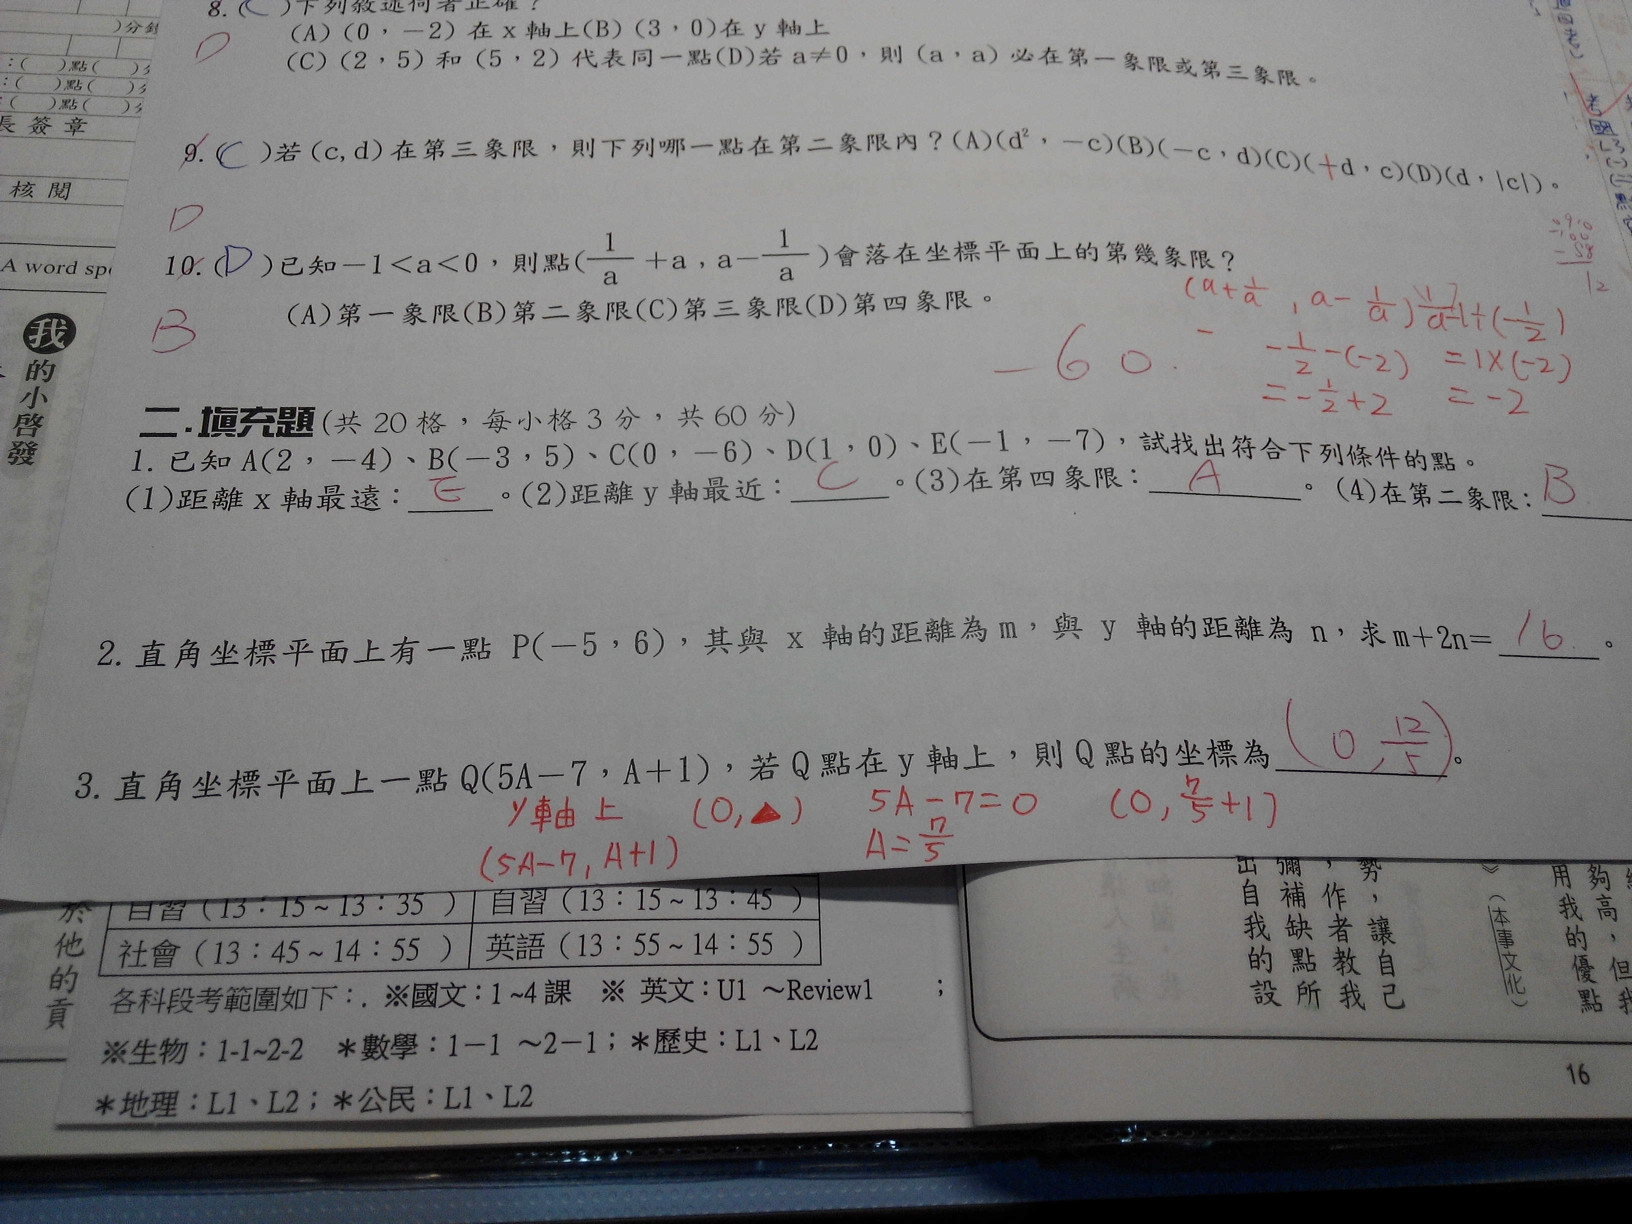 8.(C )下列敘述何者正確？
(A)(0，－2) 在 x 軸上(B) (3，0)在 y 軸上
D
(C) (2，5) 和 (5，2) 代表同一點(D)若 a≠0，則 (a，a) 必在第一象限或第三象限。
9.(C )若(c,d)在第三象限，則下列哪一點在第二象限內？(A)(d²，－c)(B)(－c，d)(C)(＋d，c)(D)(d，|c|)。
D
10.(D )已知－1＜a＜0，則點(1/a ＋a , a－1/a )會落在坐標平面上的第幾象限？
(A)第一象限(B)第二象限(C)第三象限(D)第四象限。
B
(a+1/a , a-1/a)
-1/2-(-2) =1×(-2)
=-1/2+2 =-2
-60.
二.填充題(共 20 格，每小格 3 分，共 60 分)
1.已知 A(2，－4)、B(－3，5)、C(0，－6)、D(1，0)、E(－1，－7)，試找出符合下列條件的點。
(1)距離 x 軸最遠：E。(2)距離 y 軸最近：C。(3)在第四象限：A。(4)在第二象限：B
2.直角坐標平面上有一點 P(－5，6)，其與 x 軸的距離為 m，與 y 軸的距離為 n，求 m＋2n=16。
3.直角坐標平面上一點 Q(5A－7，A＋1)，若 Q 點在 y 軸上，則 Q 點的坐標為(0, 12/5)。
y軸上 (0,▲) 5A-7=0 (0, 7/5+1)
(5A-7, A+1) A=7/5
自習（13：15～13：35 ） 自習（13：15～13：45 ）
社會（13：45～14：55 ） 英語（13：55～14：55 ）
各科段考範圍如下：. ※國文：1~4課 ※ 英文：U1 ～Review1 ；
※生物：1-1~2-2 ＊數學：1－1 ～2－1；＊歷史：L1、L2
＊地理：L1、L2；＊公民：L1、L2
）分鐘
：( )點( )
：( )點( )
( )點( )
長簽章
核閱
A word
我的小啓發
於他的貢
勢，讓自己
，作者教我
彌補缺點所
出自我的設
》（本事文化）
夠高，但我
用我的優點
16